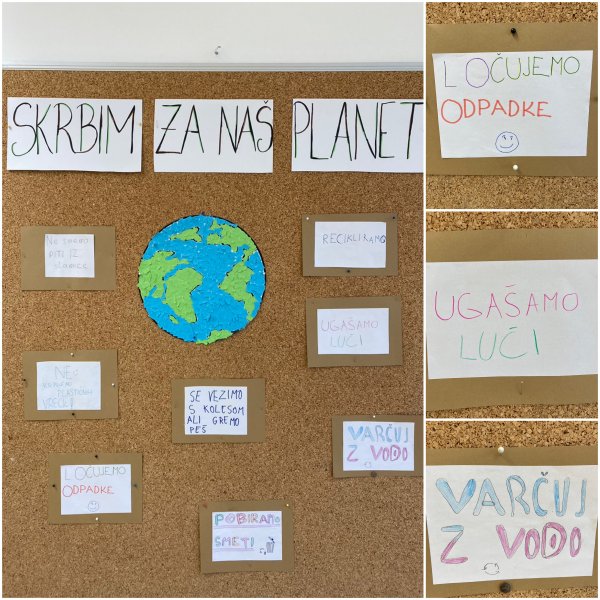 SKRBIM ZA NAŠ PLANET
PITI IZ
RECIKLIRAMO
UGAŠAMO
LUČI
NE
PLASTIČNIH
SE VEZIMO
S KOLESOM
ALI GREMO
PEŠ
VARČUJ
Z VODO
LOČUJEMO
ODPADKE
POBIRAMO
SMETI
LOČUJEMO
ODPADKE
UGAŠAMO
LUČI
VARČUJ
Z VODO